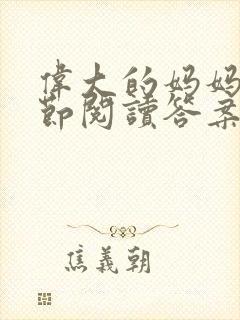 偉大的妈妈
節閱讀答案
焦義朝